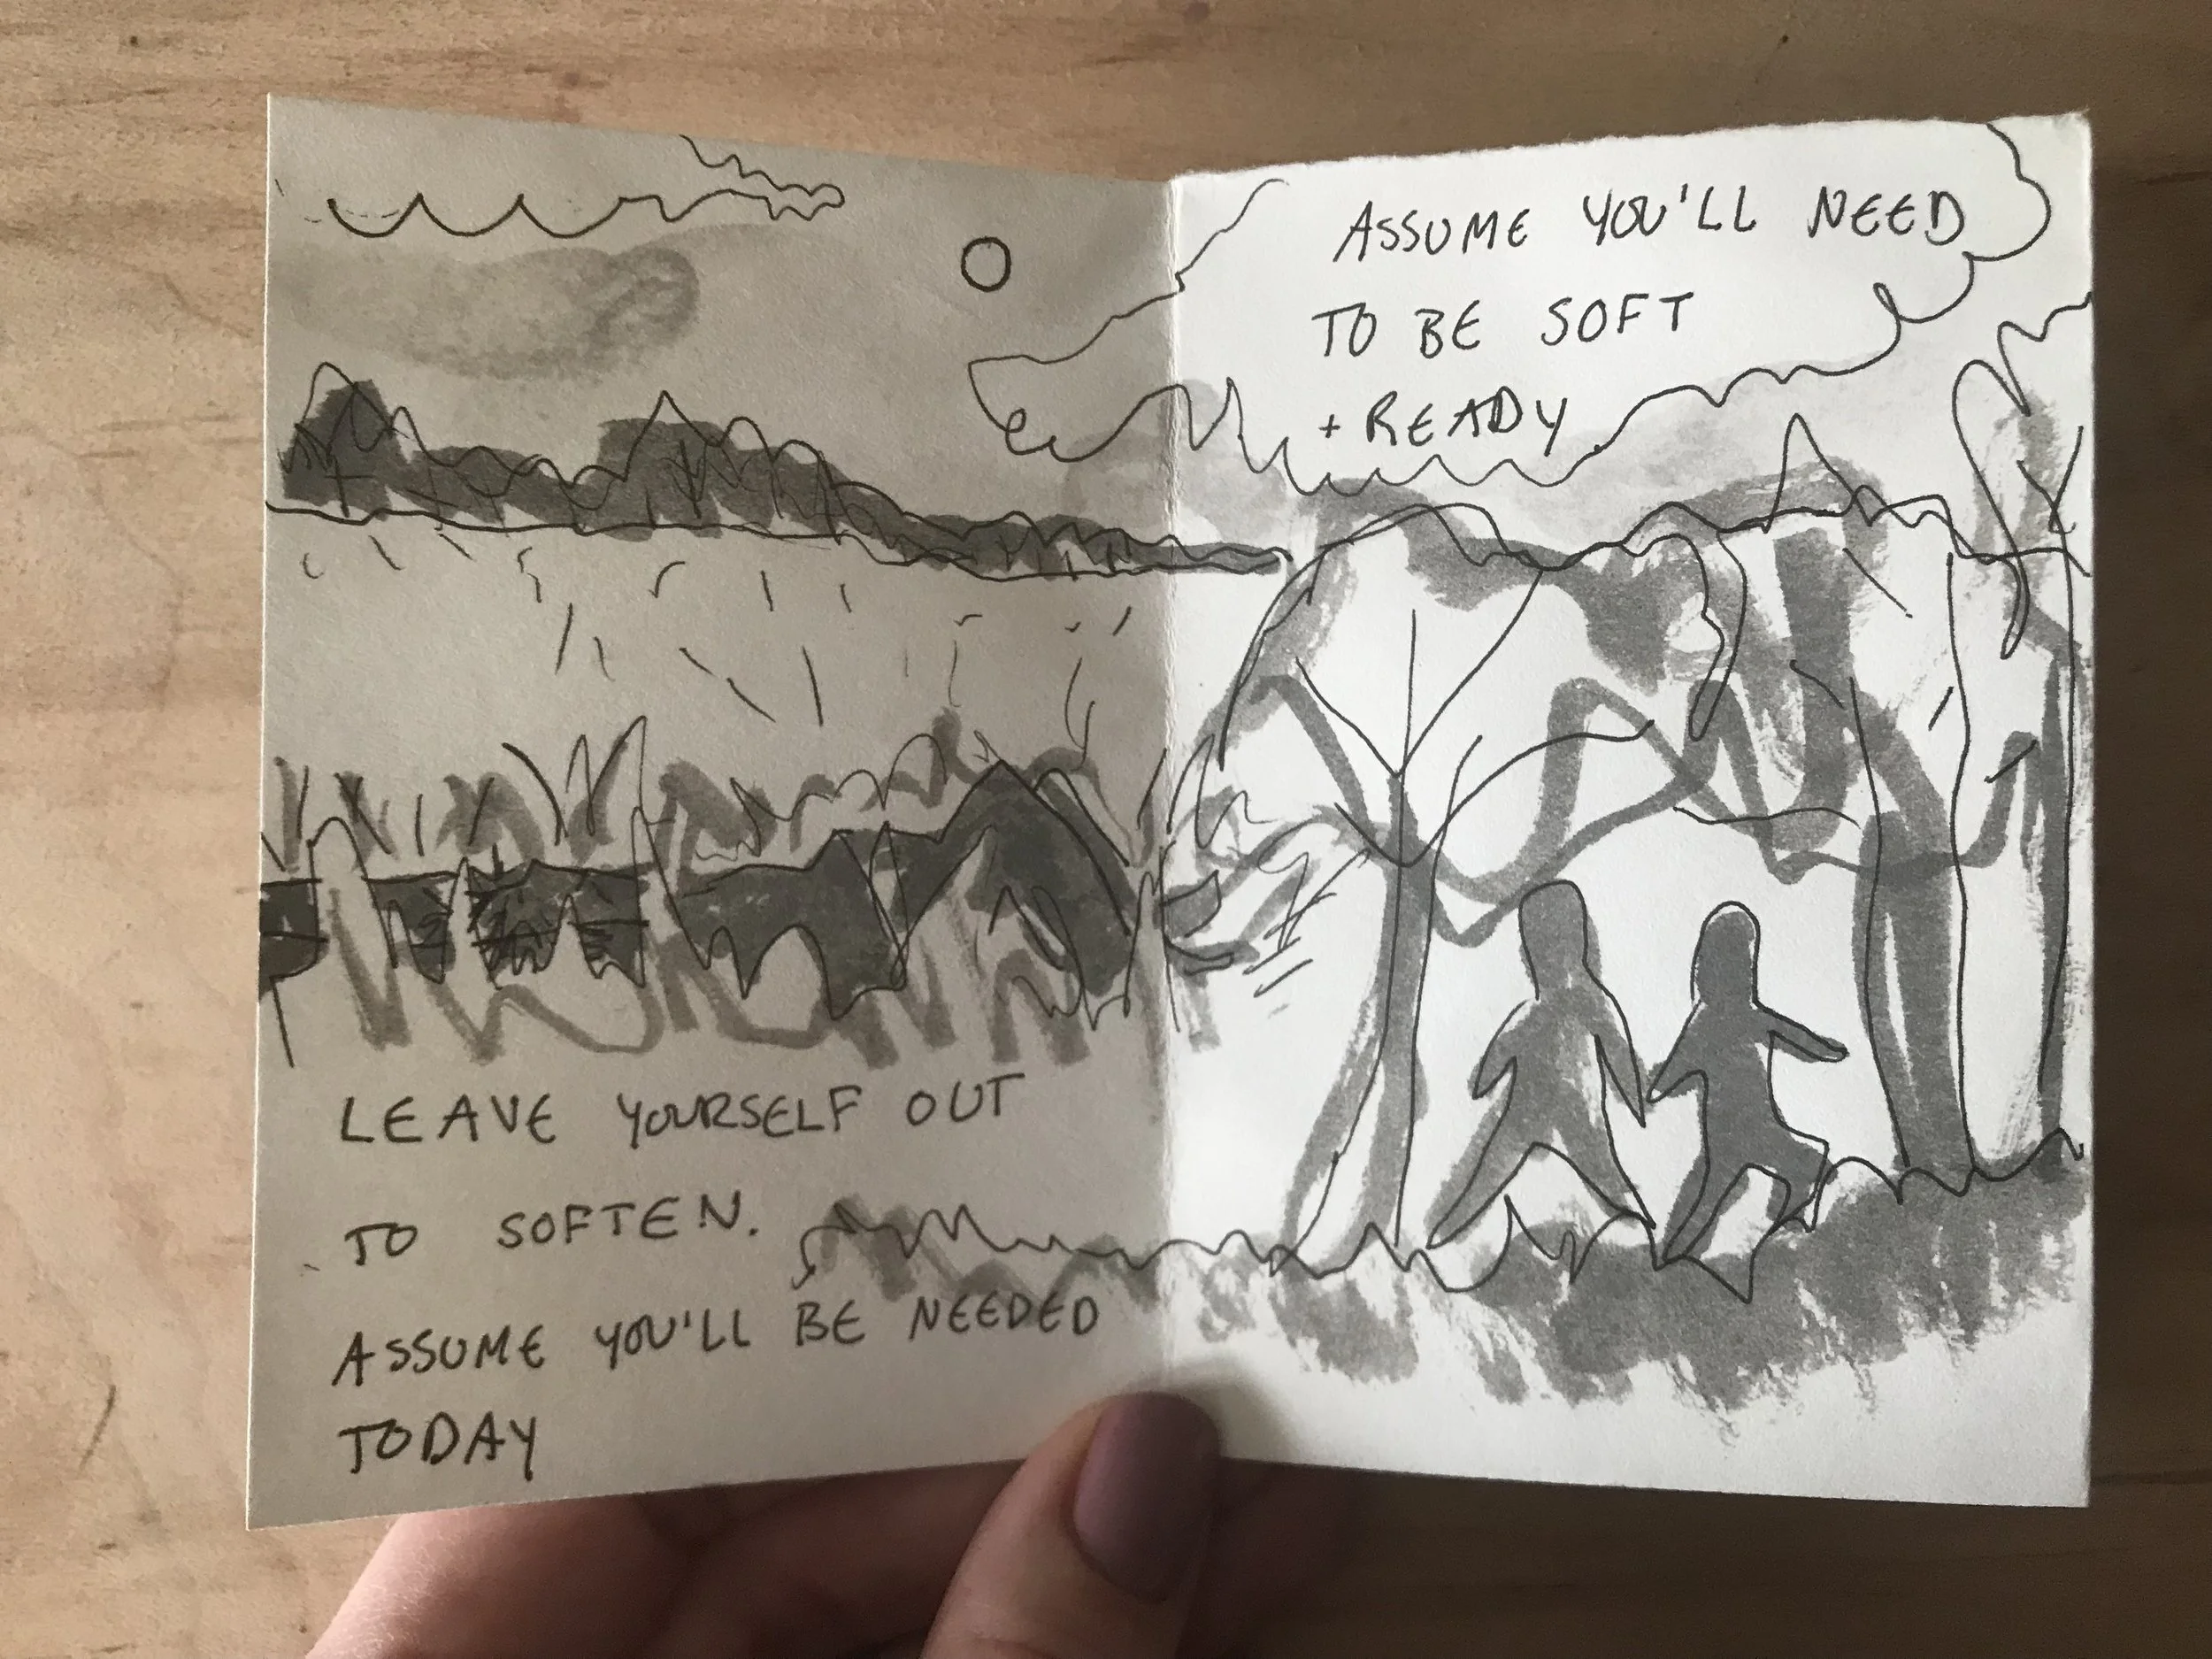 LEAVE YOURSELF OUT
TO SOFTEN.
ASSUME YOU'LL BE NEEDED
TODAY
ASSUME YOU'LL NEED
TO BE SOFT
+ READY